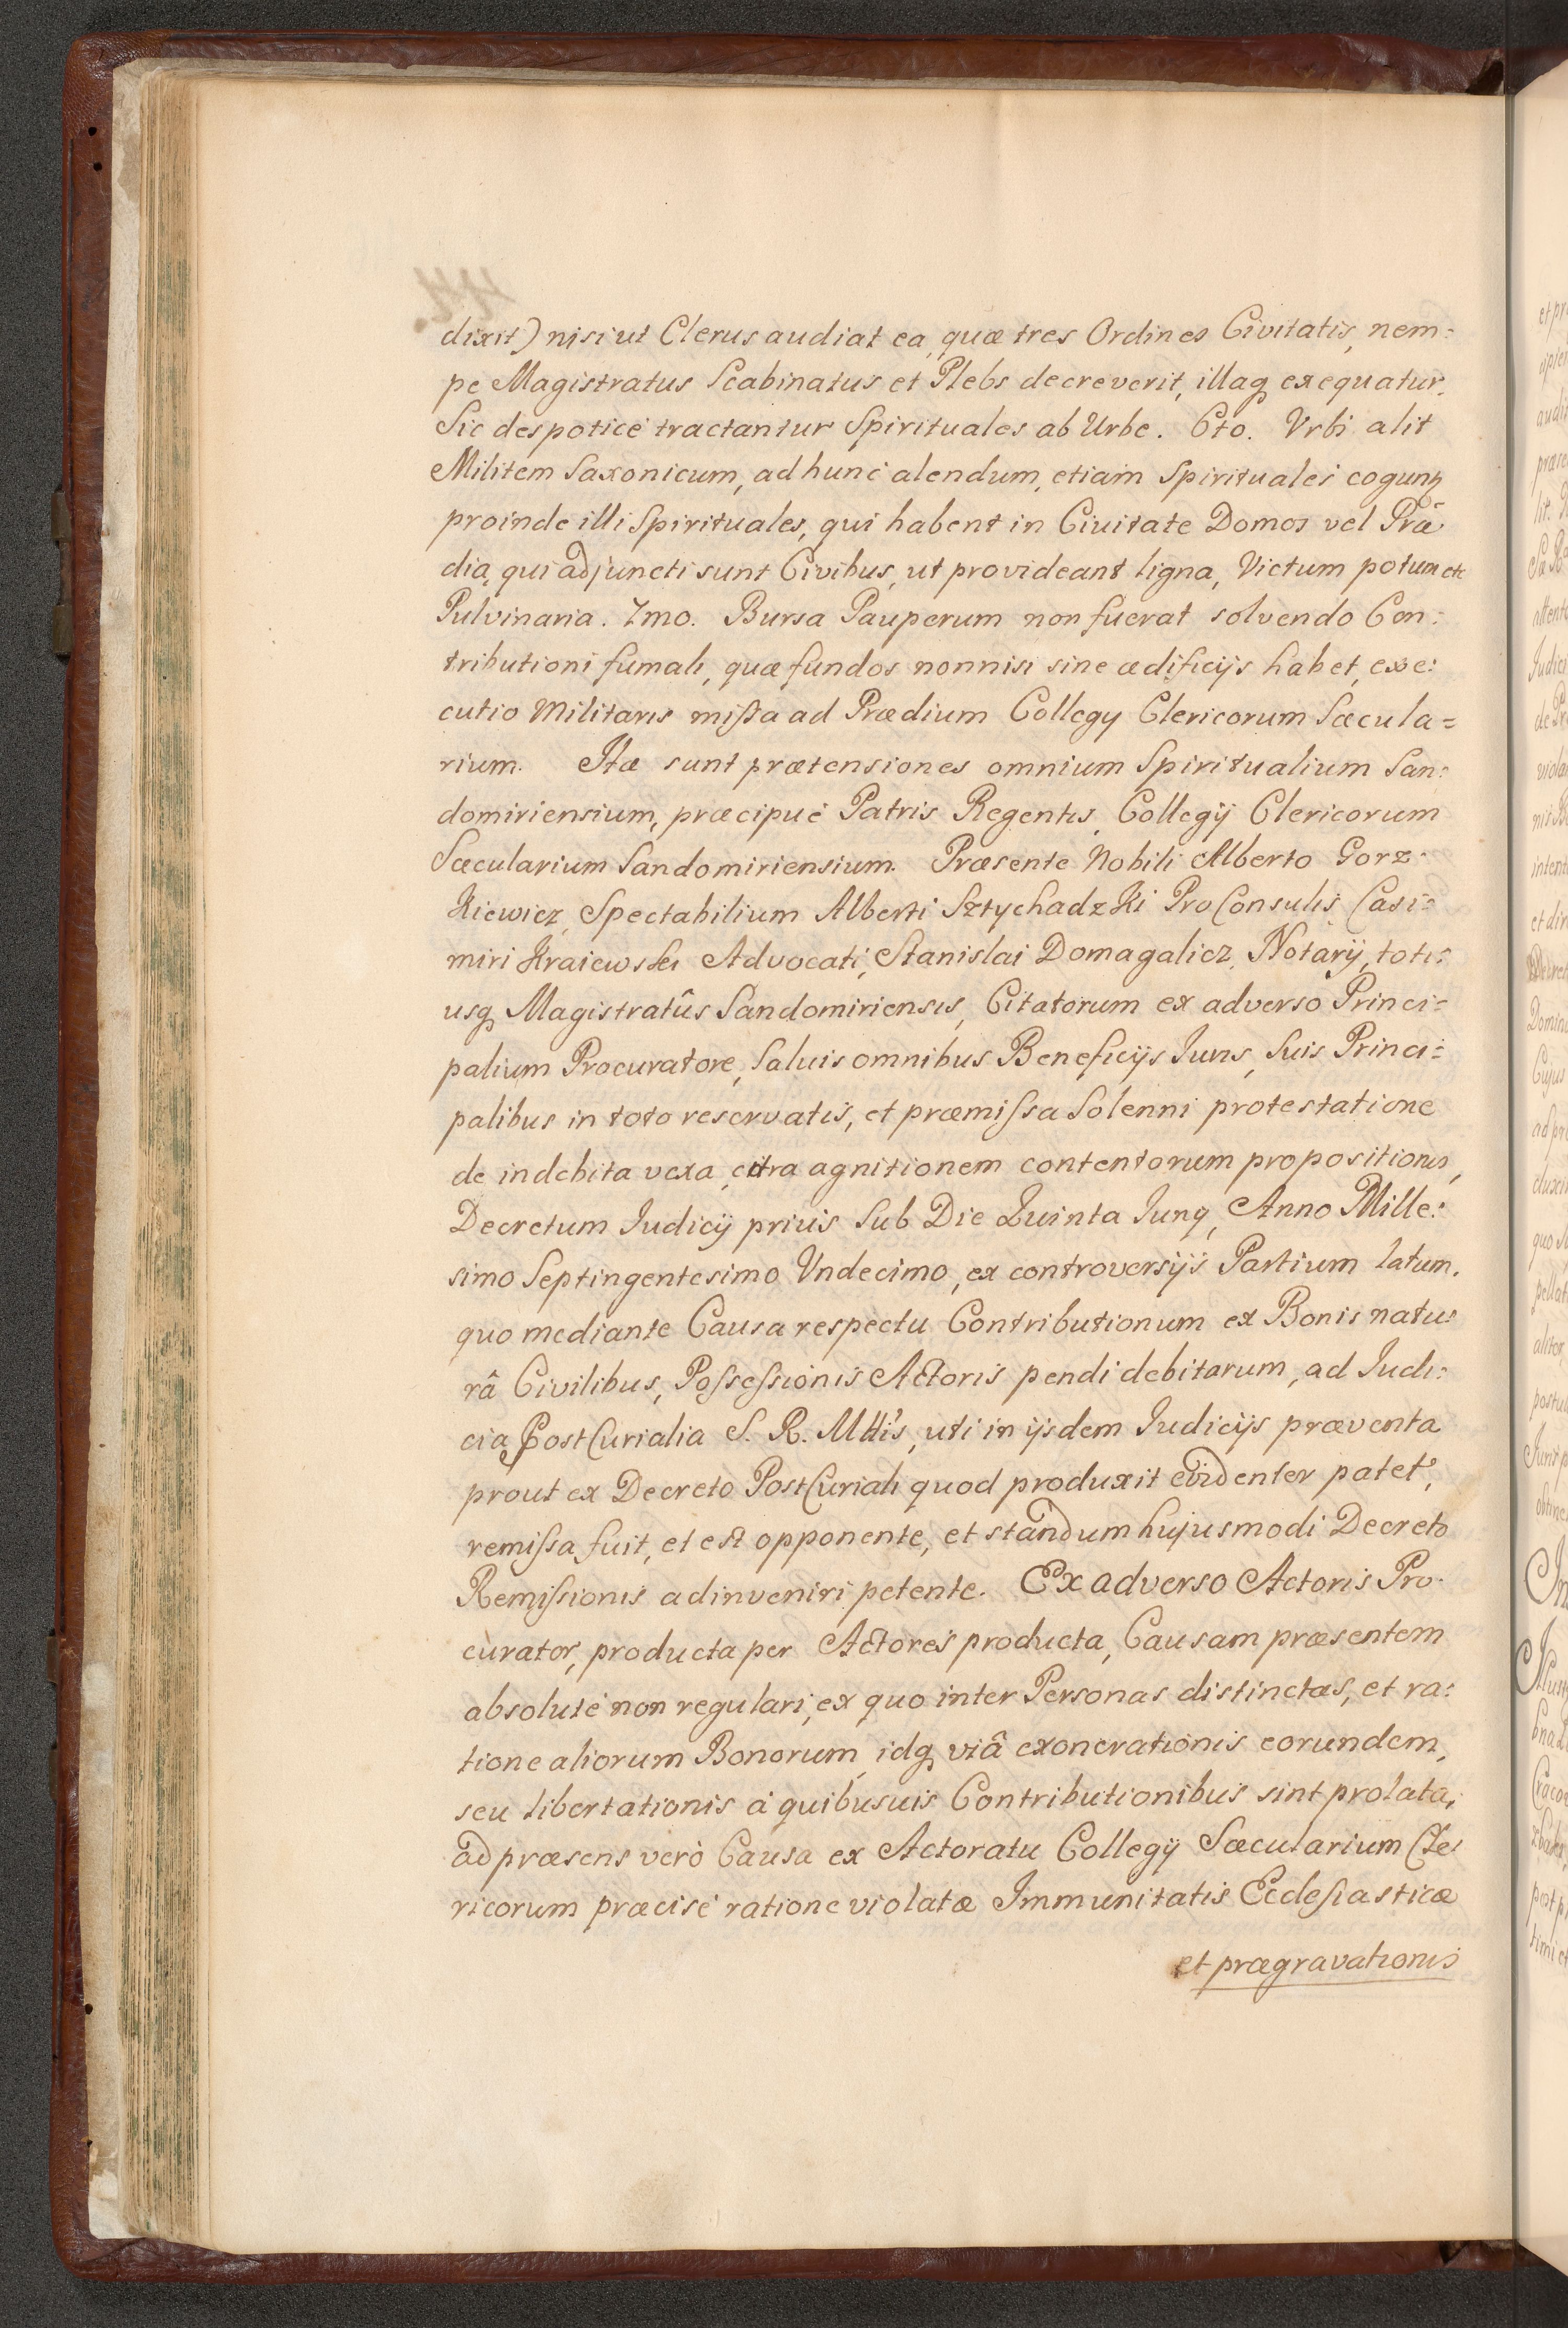 dixit) nisi ut Clerus audiat ea, quæ tres Ordines Civitatis, nem:
pe Magistratus Scabinatus et Plebs decreverit, illaq exequatur.
Sic despoticè tractantur Spirituales ab Urbe. 6to. Vrbs alit
Militem Saxonicum, ad hunc alendum, etiam Spirituales cogunt
proinde illi Spirituales, qui habent in Civitate Domos vel Præ
dia, qui adjuncti sunt Civibus, ut provideant ligna, Victum potum etc
Pulvinaria. 7mo. Bursa Pauperum non fuerat solvendo Con:
tributioni fumali, quæ fundos nonnisi sine ædificijs habet, exe:
cutio Militaris missa ad Prædium Collegy Clericorum Sæcula=
rium. Hæ sunt prætensiones omnium Spiritualium San:
domiriensium, præcipuè Patris Regentis, Collegij Clericorum
Sæcularium Sandomiriensium. Præsente Nobili Alberto Gorz:
Kiewicz, Spectabilium Alberti SztychadzKi ProConsulis, Casi:
miri Kraiewski Advocati, Stanislai Domagalicz, Notarij, toti:
usq Magistratûs Sandomiriensis, Citatorum ex adverso Princi:
palium Procuratore, Salvis omnibus Beneficijs Iuris, Suis Princi:
palibus in toto reservatis, et præmissa Solenni protestatione
de indebita vexa, citra agnitionem contentorum propositionis,
Decretum Iudicij priùs Sub Die Quinta Iunij, Anno Mille:
simo Septingentesimo Vndecimo, ex controversijs Partium latum,
quo mediante Causa respectu Contributionum ex Bonis natu:
râ Civilibus, Possessionis Actoris pendi debitarum, ad Iudi:
cia PostCurialia S. R. Mttis, uti in ijsdem Iudicijs præventa
prout ex Decreto PostCuriali quod produxit evidenter patet,
remissa fuit, et est opponente, et standum hujusmodi Decreto
Remissionis adinveniri petente. Ex adverso Actoris Pro:
curator, producta per Actores producta, Causam præsentem
absolutè non regulari, ex quo inter Personas distinctas, et ra:
tione aliorum Bonorum, idq viâ exonerationis eorundem,
seu libertationis à quibusvis Contributionibus sint prolata,
ad præsens verò Causa ex Actoratu Collegij Sæcularium Cle:
ricorum præcisè ratione violatæ Immunitatis Ecclesiasticæ
et prægravationis